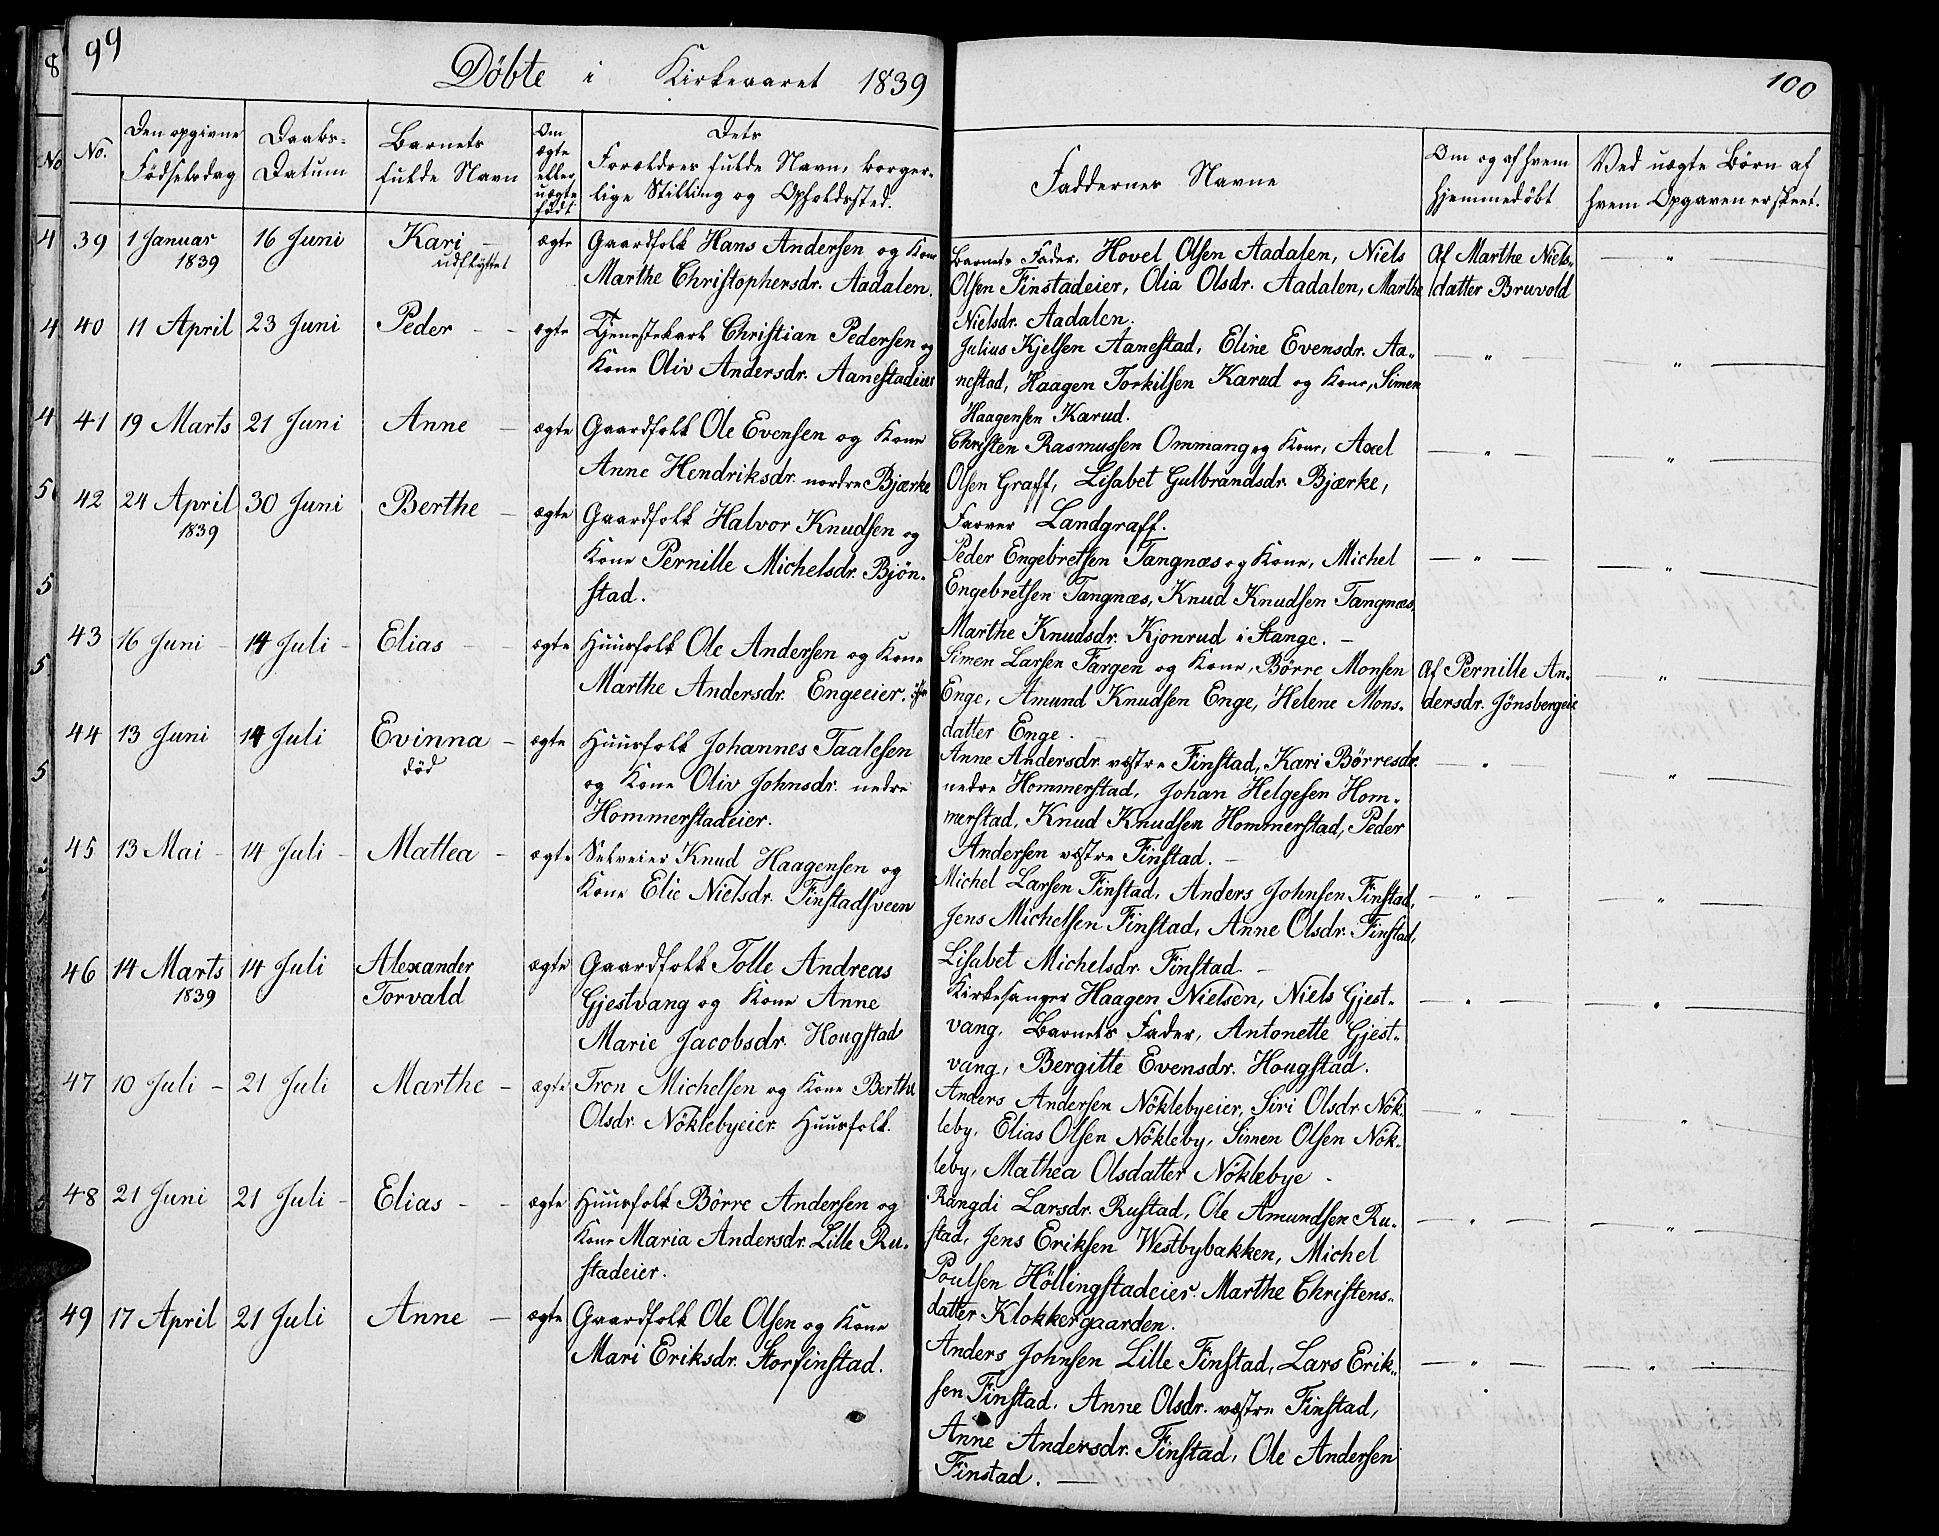 99
Döbte i Kirkeaaret 1839
No.
Den opgivne
Födselsdag
Daabs-
Datum
Barnets
fulde Navn
Om
ægte
eller
uægte
födt
Dets
Forældres fulde Navn, borger-
lige Stilling og Opholdssted.
39
1 Januar
1839
16 Juni
Kari
udflyttet
ægte
Gaardfolk Hans Andersen og Kone
Marthe Christophersdr. Aadalen.
40
11 April
23 Juni
Peder
ægte
Tjenestekarl Christian Pedersen og
Kone Oliv Andersdr. Aanestadeier
41
19 Marts
21 Juni
Anne
ægte
Gaardfolk Ole Evensen og Kone
Anne Hendriksdr. nordre Bjærke
42
24 April
1839
30 Juni
Berthe
ægte
Gaardfolk Halvor Knudsen og
Kone Pernille Michelsdr. Bjön-
stad.
43
16 Juni
14 Juli
Elias
ægte
Huusfolk Ole Andersen og Kone
Marthe Andersdr. Engeeier.
44
13 Juni
14 Juli
Evinna
död
ægte
Huusfolk Johannes Taalesen
og Kone Oliv Johnsdr. nedre
Hommerstadeier.
45
13 Mai
14 Juli
Mattea
ægte
Selveier Knud Haagensen og
Kone Elie Nielsdr. Finstadsveen
46
14 Marts
1839
14 Juli
Alexander
Torvald
ægte
Gaardfolk Tolle Andreas
Gjestvang og Kone Anne
Marie Jacobsdr. Hougstad
47
10 Juli
21 Juli
Marthe
ægte
Tron Michelsen og Kone Berthe
Olsdr. Nöklebyeier Huusfolk.
48
21 Juni
21 Juli
Elias
ægte
Huusfolk Börre Andersen og
Kone Maria Andersdr. Lille Ru-
stadeier.
49
17 April
21 Juli
Anne
ægte
Gaardfolk Ole Olsen og Kone
Mari Eriksdr. Storfinstad.
100
Faddernes Navne
Om og af hvem
hjemmedöbt
Ved uægte Börn af
hvem Opgaven er skeet.
Barnets Fader, Hovel Olsen Aadalen, Niels
Olsen Finstadeier, Olia Olsdr. Aadalen, Marthe
Nielsdr. Aadalen.
Af Marthe Niels-
datter Bruvold
Julius Kjelsen Aanestad, Eline Evensdr. Aa-
nestad, Haagen Torkilsen Karud og Kone, Simen
Haagensen Karud.
Christen Rasmussen Ommang og Kone, Axel
Olsen Graff, Lisabet Gulbrandsdr. Bjærke,
Farver Landgraff.
Peder Engebretsen Tangnæs og Kone, Michel
Engebretsen Tangnæs, Knud Knudsen Tangnæs
Marthe Knudsdr. Kjonrud i Stange.
Simen Larsen Fargen og Kone, Börre Monsen
Enge, Amund Knudsen Enge, Helene Mons-
datter Enge.
Af Pernille An-
dersdr. Jönsbergeie
Anne Andersdr. væstre Finstad, Kari Börresdr.
nedre Hommerstad, Johan Helgesen Hom-
merstad, Knud Knudsen Hommerstad, Peder
Andersen væstre Finstad.
Michel Larsen Finstad, Anders Johnsen Finstad,
Jens Michelsen Finstad, Anne Olsdr. Finstad,
Lisabet Michelsdr. Finstad
Kirkesanger Haagen Nielsen, Niels Gjest-
vang, Barnets Fader, Antonette Gjest-
vang, Bergitte Evensdr. Hougstad.
Anders Andersen Nöklebyeier, Siri Olsdr. Nök-
leby, Elias Olsen Nökleby, Simen Olsen Nök-
leby, Mathea Olsdatter Nöklebye
Rangdi Larsdr. Rustad, Ole Amundsen Ru-
stad, Jens Eriksen Westbybakken, Michel
Poulsen Höllingstadeier, Marthe Christens-
datter Klokkergaarden.
Anders Johnsen Lille Finstad, Lars Erik-
sen Finstad, Anne Olsdr. væstre Finstad,
Anne Andersdr. Finstad, Ole Andersen
Finstad.